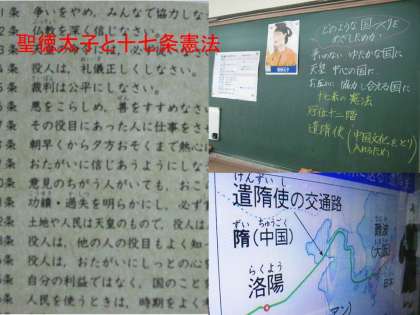 聖徳太子と十七条憲法
1条 争いをやめ、みんなで協力しな
条 役人は、礼儀正しくしなさい。
条 裁判は公平にしなさい。
条 悪をこらしめ、善をすすめなさい
条 その役目にあった人に仕事をさせ
条 朝早くから夕方おそくまで熱心に
条 おたがいに信じあうようにしな
条 意見のちがう人がいても、おこ
条 功績・過失を明らかにし、必ず
2条 土地や人民は天皇のもので、役人は
条 役人は、他の人の役目もよく知っ
条 役人は、おたがいにしっとの心を
条 自分の利益ではなく、国のこと
条 人民を使うときは、時期をよく
どのような国づくりを
めざしたのか
争いのない ゆたかな国に
天皇 中心の国に
お互いに 協力し合える国に
十七条の憲法
冠位十二階
遣隋使
中国文化をとり
入れるため
けんずいし
遣隋使の交通路
ずい ちゅうごく
隋(中国)
らくよう
洛陽
難波
日本